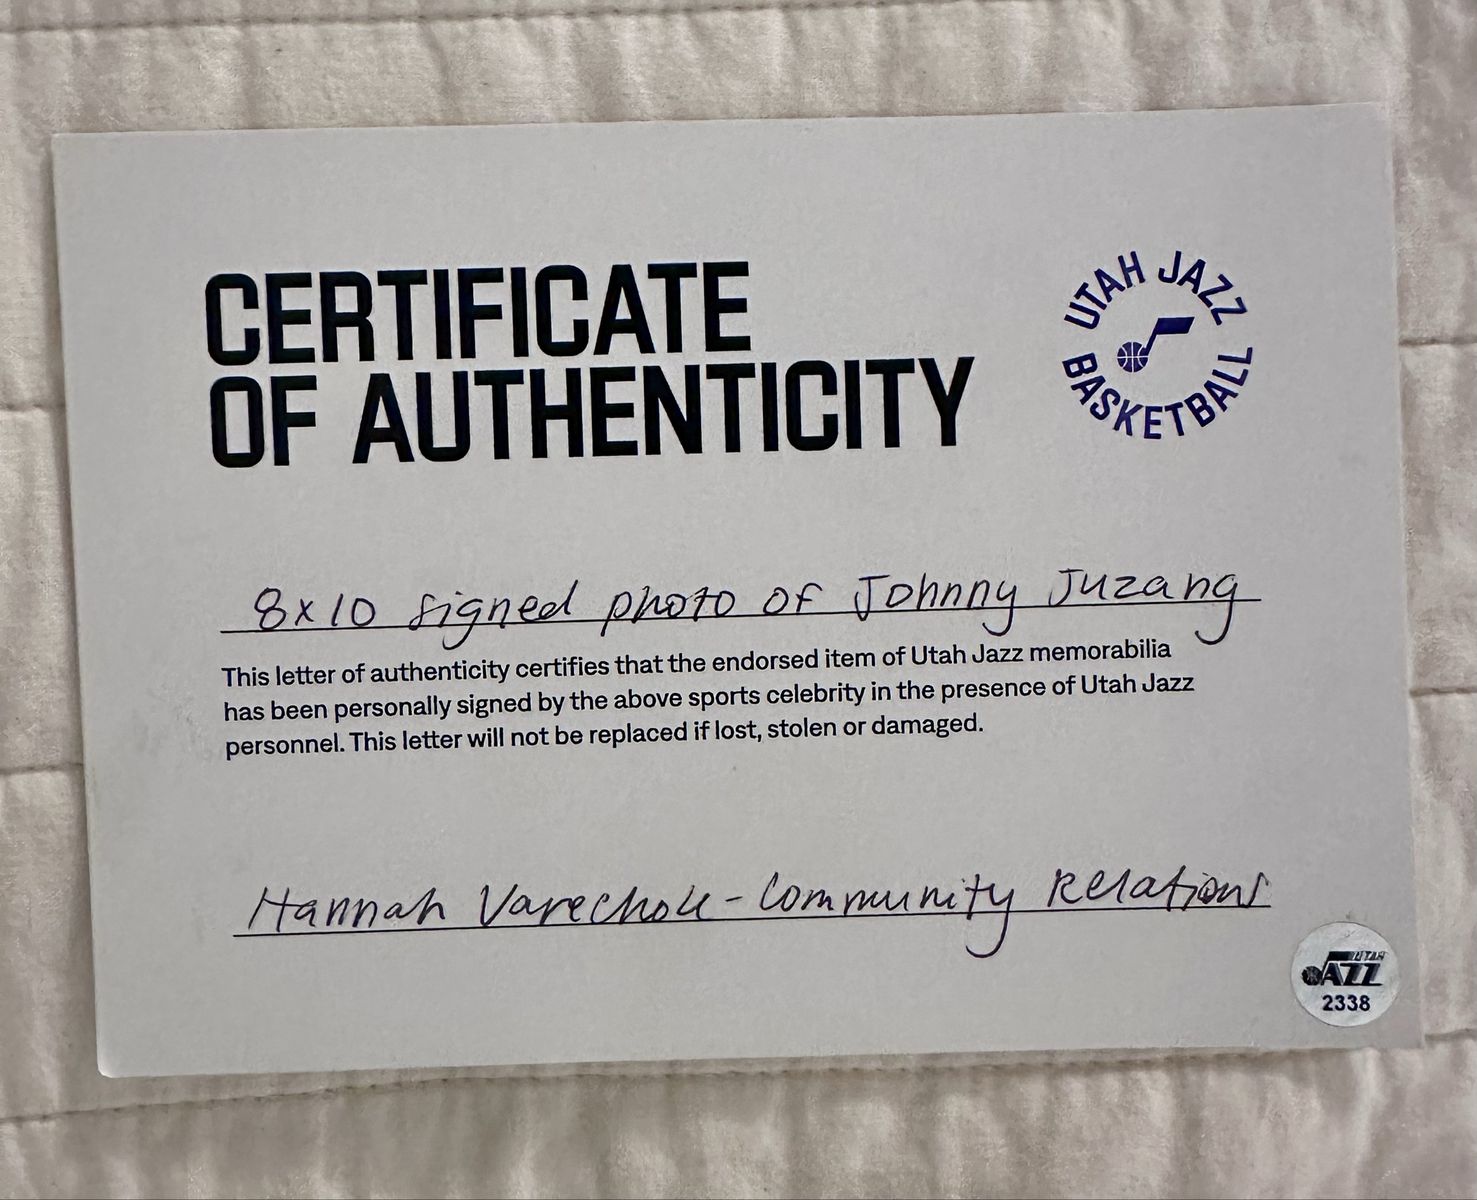 CERTIFICATE
OF AUTHENTICITY
UTAH JAZZ
BASKETBALL
8x10 signed photo of Johnny Juzang
This letter of authenticity certifies that the endorsed item of Utah Jazz memorabilia
has been personally signed by the above sports celebrity in the presence of Utah Jazz
personnel. This letter will not be replaced if lost, stolen or damaged.
Hannah - Community Relations
UTAH
JAZZ
2338